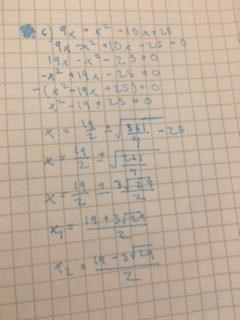 c) 9x = x² - 10x + 25
9x - x² + 10x - 25 = 0
19x - x² - 25 = 0
-x² + 19x - 25 = 0
-(x² - 19x + 25) = 0
x² - 19 + 25 = 0
x = 19/2 ± √(361/4 - 25)
x = 19/2 ± √(261/4)
x = 19/2 ± 3√29/2
x₁ = (19 + 3√29)/2
x₂ = (19 - 3√29)/2